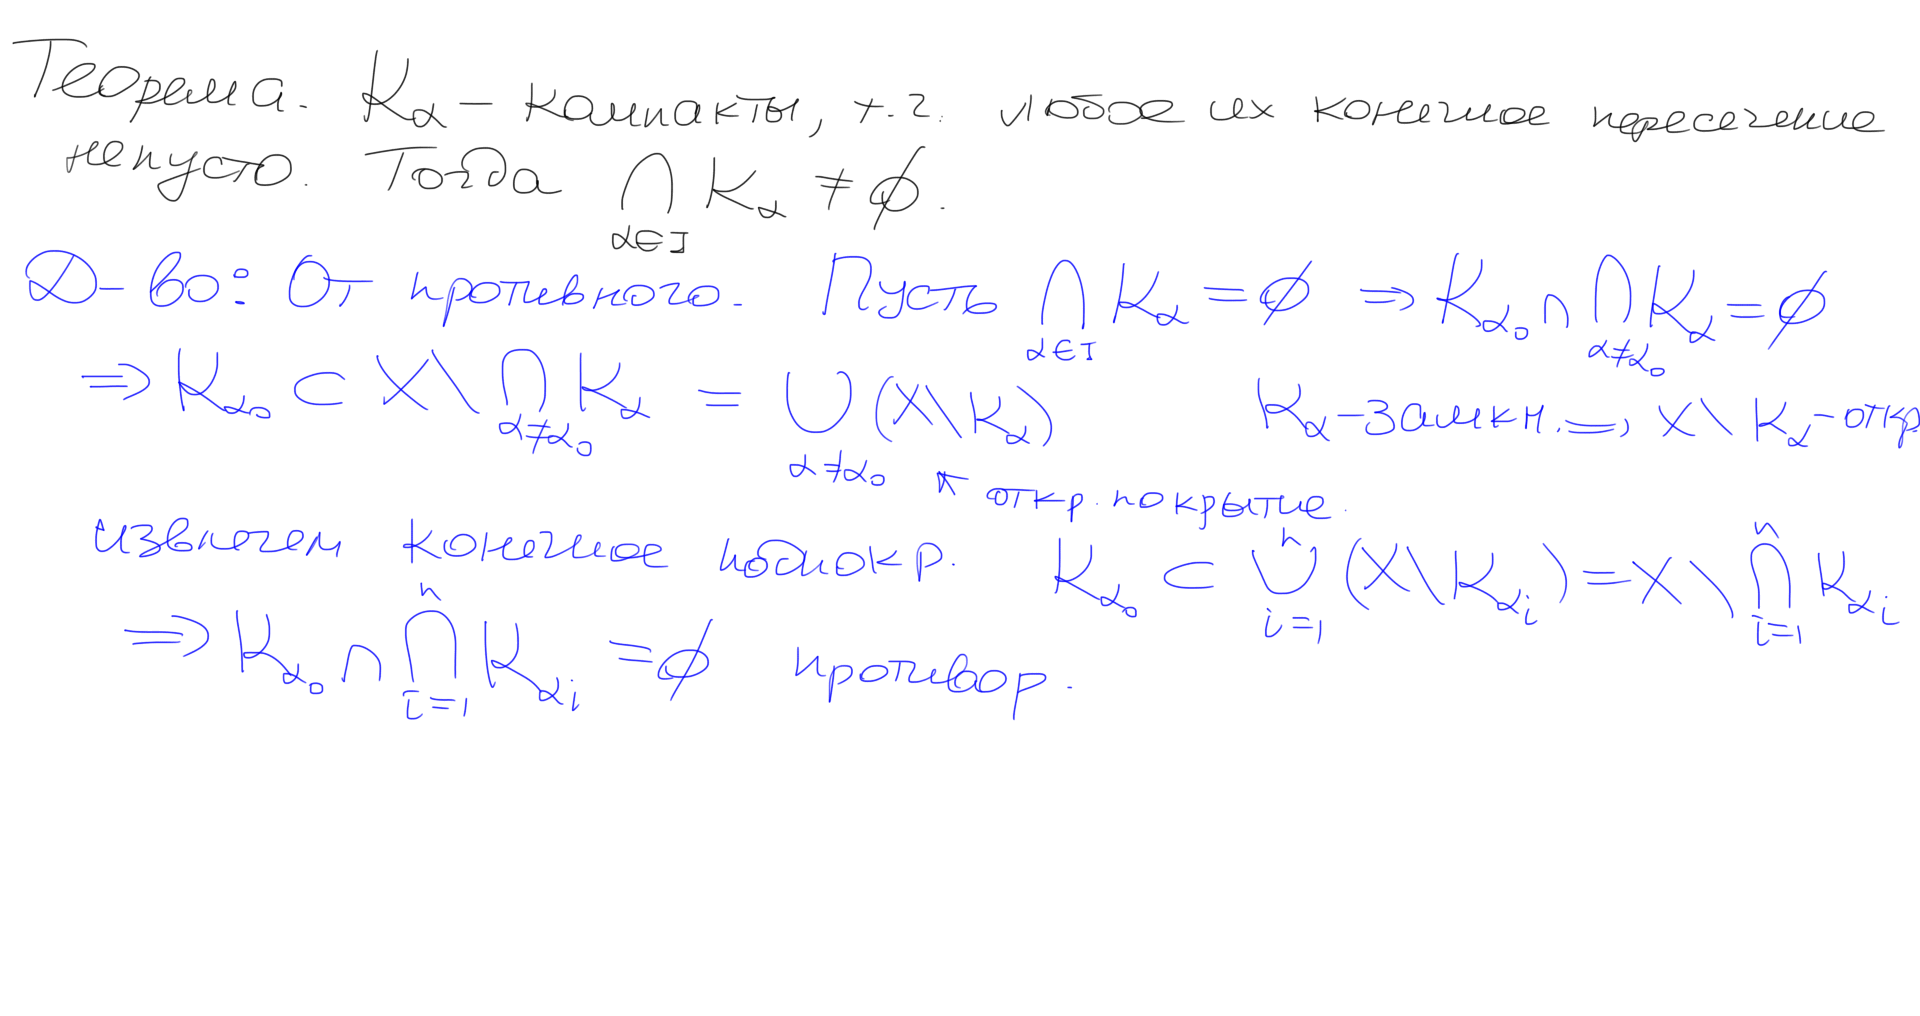 Теорема. K_α – компакты, т.ч. любое их конечное пересечение
непусто. Тогда ⋂_{α∈I} K_α ≠ ∅.
Д-во: От противного. Пусть ⋂_{α∈I} K_α = ∅ ⇒ K_{α₀} ∩ ⋂_{α≠α₀} K_α = ∅
⇒ K_{α₀} ⊂ X \ ⋂_{α≠α₀} K_α = ⋃_{α≠α₀} (X \ K_α) K_α – замкн. ⇒ X \ K_α – откр.
↖ откр. покрытие.
извлечем конечное подпокр. K_{α₀} ⊂ ⋃_{i=1}^{n} (X \ K_{α_i}) = X \ ⋂_{i=1}^{n} K_{α_i}
⇒ K_{α₀} ∩ ⋂_{i=1}^{n} K_{α_i} = ∅ противор.